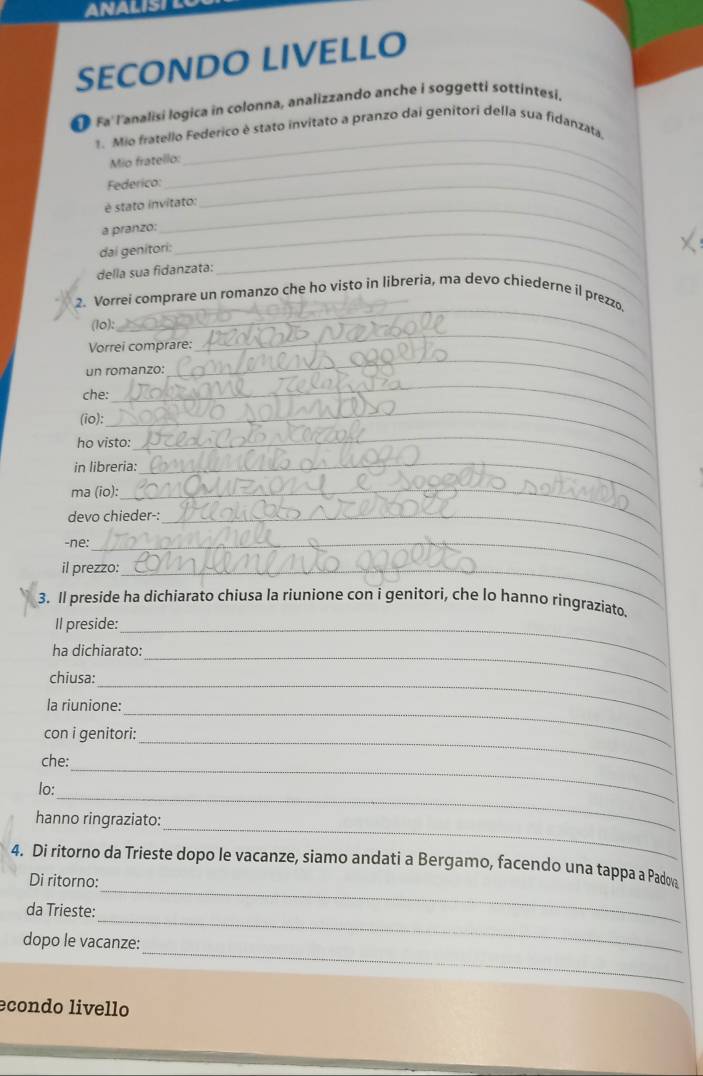 ANALISI
SECONDO LIVELLO
1 Fa' l'analisi logica in colonna, analizzando anche i soggetti sottintesi.
1. Mio fratello Federico è stato invitato a pranzo dai genitori della sua fidanzata.
Mio fratello:
Federico:
è stato invitato:
a pranzo:
dai genitori:
della sua fidanzata:
2. Vorrei comprare un romanzo che ho visto in libreria, ma devo chiederne il prezzo.
(Io): soggetto sottinteso
Vorrei comprare: predicato verbale
un romanzo: complemento oggetto
che: relativa
(io): soggetto sottinteso
ho visto: predicato verbale
in libreria: complemento di luogo
ma (io): congiunzione e soggetto sottinteso
devo chieder-: predicato verbale
-ne:
il prezzo: complemento oggetto
3. Il preside ha dichiarato chiusa la riunione con i genitori, che lo hanno ringraziato.
Il preside:
ha dichiarato:
chiusa:
la riunione:
con i genitori:
che:
lo:
hanno ringraziato:
4. Di ritorno da Trieste dopo le vacanze, siamo andati a Bergamo, facendo una tappa a Padova
Di ritorno:
da Trieste:
dopo le vacanze:
econdo livello